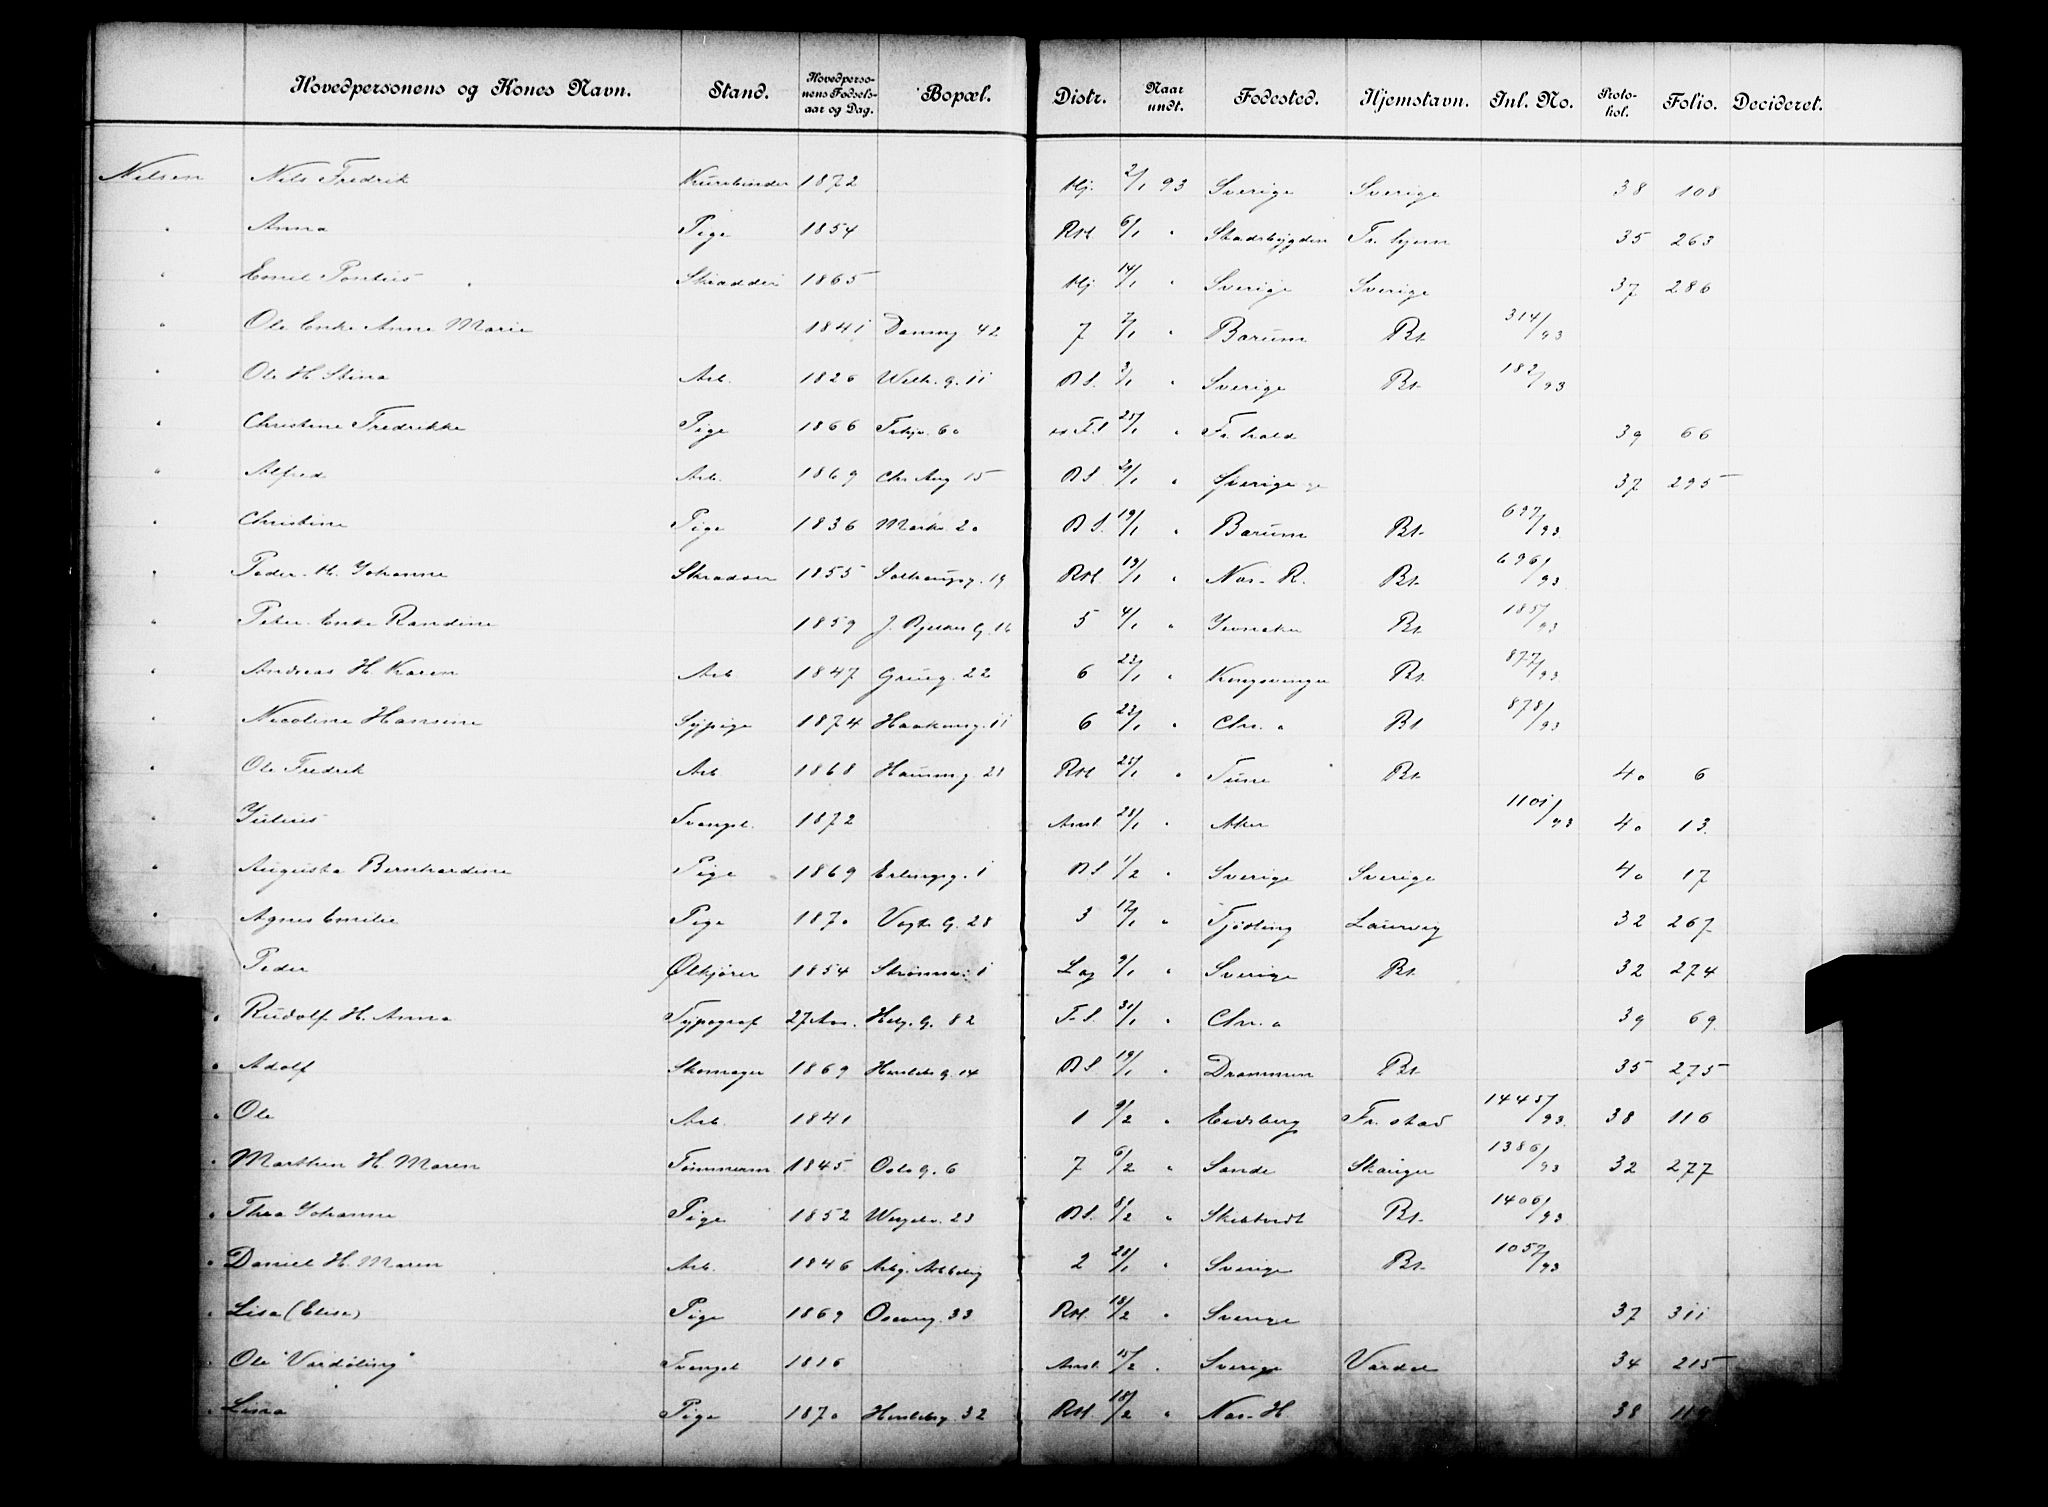 Hovedpersonens og Kones Navn. Stand. Hovedperso-nens Fødsels-aar og Dag. Bopæl. Distr. Naar undt. Fødested. Hjemstavn. Inl. No. Proto-kol. Folio. Decideret.
Nilsen Nils Fredrik Kurvbinder 1872 Hj. 2/1 93 Sverige Sverige 38 108
" Anna Pige 1854 RH 6/1 " Stadsbygden Tr.hjem 35 263
" Emil Pontus Skrædder 1865 Hj 14/1 " Sverige Sverige 37 286
" Ole Enke Anne Marie 1841 42 7 2/1 " Bærum Bt. 314/93
" Ole H. Stina Arb. 1826 Welh. g. 11 BS. 3/1 " Sverige Bt. 182/93
" Christine Fredrikke Pige 1866 60 F.S 25/1 " Fr.hald 39 66
" Alfred Arb. 1869 Chr Aug 15 BS. 21/1 " Sverige 37 295
" Christine Pige 1836 Markv. 20 BS. 19/1 " Bærum Bt. 697/93
" Peder H. Johanne Skrædder 1855 19 RH 19/1 " Næs. R. Bt. 696/93
" Peter Enke Randine 1859 J. Bjelkes G. 16 5 4/1 " Jevnaker Bt. 185/93
" Andreas H. Karen Arb 1847 Grüng. 22 6 23/1 " Kongsvinger Bt. 877/93
" Nicoline Hansine Sypige 1874 Haakonsg. 11 6 23/1 " Chr. a Bt 878/93
" Ole Fredrik Arb 1868 Hausmsg 21 RH 25/1 " Tune Bt. 40 6
" Julius Tvangsl. 1872 Amt. 28/1 " Aker 1101/93 40 13.
" Augusta Bernhardine Pige 1869 Erlingsg. 1 BS 1/2 " Sverige Sverige 40 17
" Agnes Emilie Pige 1870 Vogts G. 28 3 12/1 " Tjødling Laurvig 32 267
" Peder Ølkjører 1854 Strømsv. 1 Lag 9/1 " Sverige Bt. 32 274
" Rudolf H. Anna Typograf 27 Aar. Helg. G. 82 F.S. 31/1 " Chr. a 39 69.
" Adolf Skomager 1869 Herslebs G. 14 BS. 19/1 " Drammen Bt. 35 275
" Ole Arb. 1841 1 9/2 " Eidsberg Fr. stad 1445/93. 38 116
" Marthin H. Maren Tømmerm 1845. Oslo g. 6 7 6/2 " Sande Skauger 1386/93 32 277
" Thea Johanne Pige 1852 23 BS. 8/2 " Skibtvedt Bt. 1406/93
" Daniel H. Maren Arb. 1846 2 28/1 " Sverige Bt. 1057/93
" Lisa (Elise) Pige 1869 Oscarsg. 33 RH. 18/2 " Sverige 37 311
" Ole "Vardøling" Tvangsl 1816 Amt. 15/2 " Sverige Vardø 34 215
" Lina Pige 1870 Herslebsg. 32 RH. 18/2 " Næs. H. 38